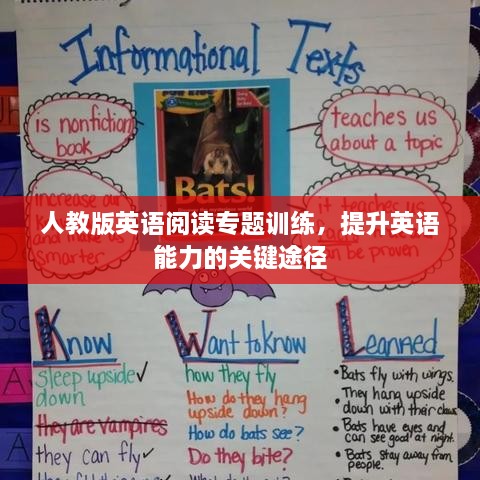 Informational Texts
is nonfiction
book
Bats!
teaches us
about a topic
increase our
smarter
it teaches us
can be proven
人教版英语阅读专题训练，提升英语
能力的关键途径
Know
sleep upside ✓
down
they are vampires
they can fly ✓
Want to know
how they fly
How do they hang
upside down?
How do bats see?
Do they bite?
Learned
•Bats fly with wings.
•They hang upside
down with their claws
•Bats have eyes and
can see good at night.
•Bats stay away from
people.